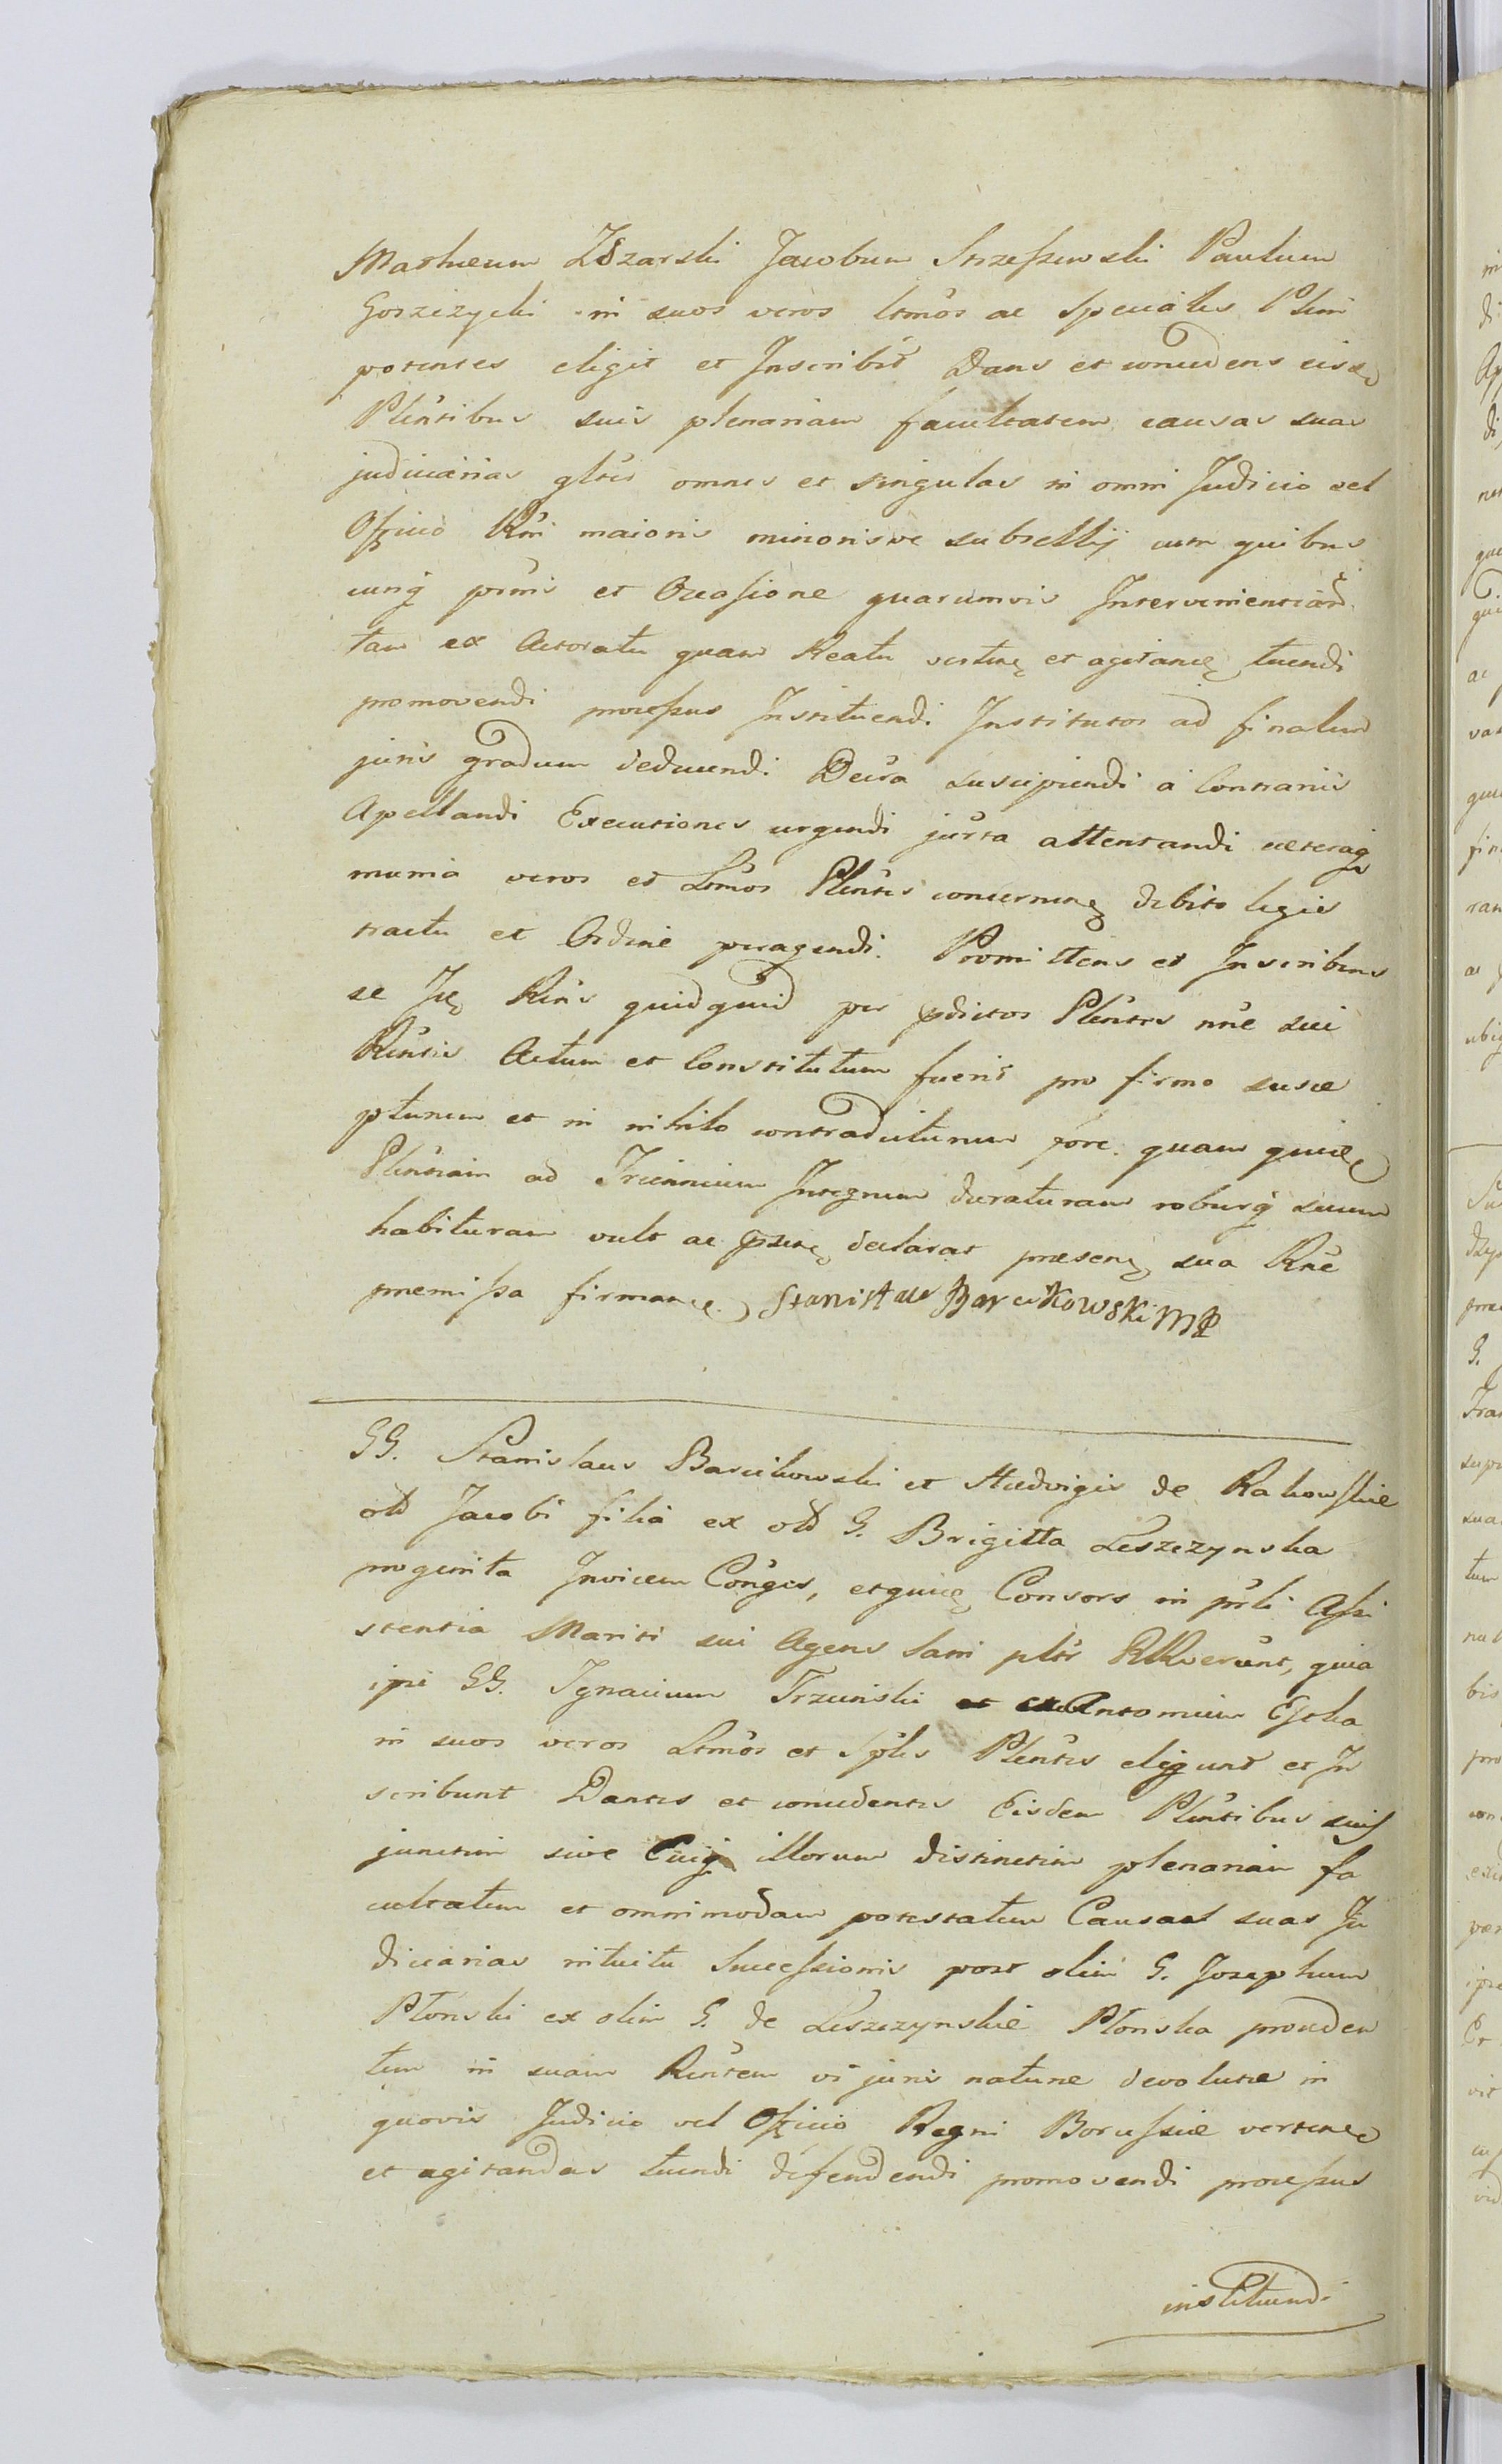 Matheum Zdzarski Jacobum Strzeszewski Paulum
Gorziżycki in suos veros ltmos ac speciales Pleni
potentes eligit et Inscribit Dans et concedens eisd
Plentibus suis plenariam facultatem causas suas
judiciarias gltes omnes et singulas in omni Judicio vel
Officio Rni maioris minorisve subsellij cum quibus
cunq psonis et Occasione quarumvis Intervenientiar
tam ex Actoratu quam Reatu verten et agitan tuendi
promovendi processus Instituendi Institutos ad finalem
juris gradum deducendi Decra suscipiendi a Contrariis
Apellandi Executiones urgendi jurta attentandi caeteraq
munia veros et Ltmos Plentes concernen debito legis
tractu et Ordine peragendi. Promittens et Inscribens
se Id Rens quidquid per pdictos Plentes nne sui
Rentis Actum et Constitutum fuerit pro firmo susce
pturum et in nihilo contradicturum fore. quam quid
Plentiam ad Triennium Integrum duraturam roburq suum
habituram vult ac psen declarat praesen sua Rne
premissa firman Stanisław Barcikowski MP
GG. Stanislaus Barcikowski et Hedvigis de Rakowskie
old Jacobi filia ex old G. Brigitta Leszczynska
progenita Invicem Conges, etquid Consors in prli Assi
stentia Mariti sui Agens Sani pltr RRverunt, quia
ipi GG. Ignacium Trzcinski Antonium Estka
in suos veros Ltmos et Sples Plentes eligunt et In
scribunt Dantes et concedentes Eisdem Plentibus suis
junctim sive Cuiq illorum distinctim plenariam fa
cultatem et omnimodam potestatem Causas suas Ju
diciarias intuitu Successionis post olim G. Josephum
Płonski ex olim G. de Leszczynskie Płonska proceden
tem in suam Rentem vi juris nature devolute in
quovis Judicio vel Officio Regni Borussiae verten
et agitandas tuendi defendendi promovendi processus
instituendi